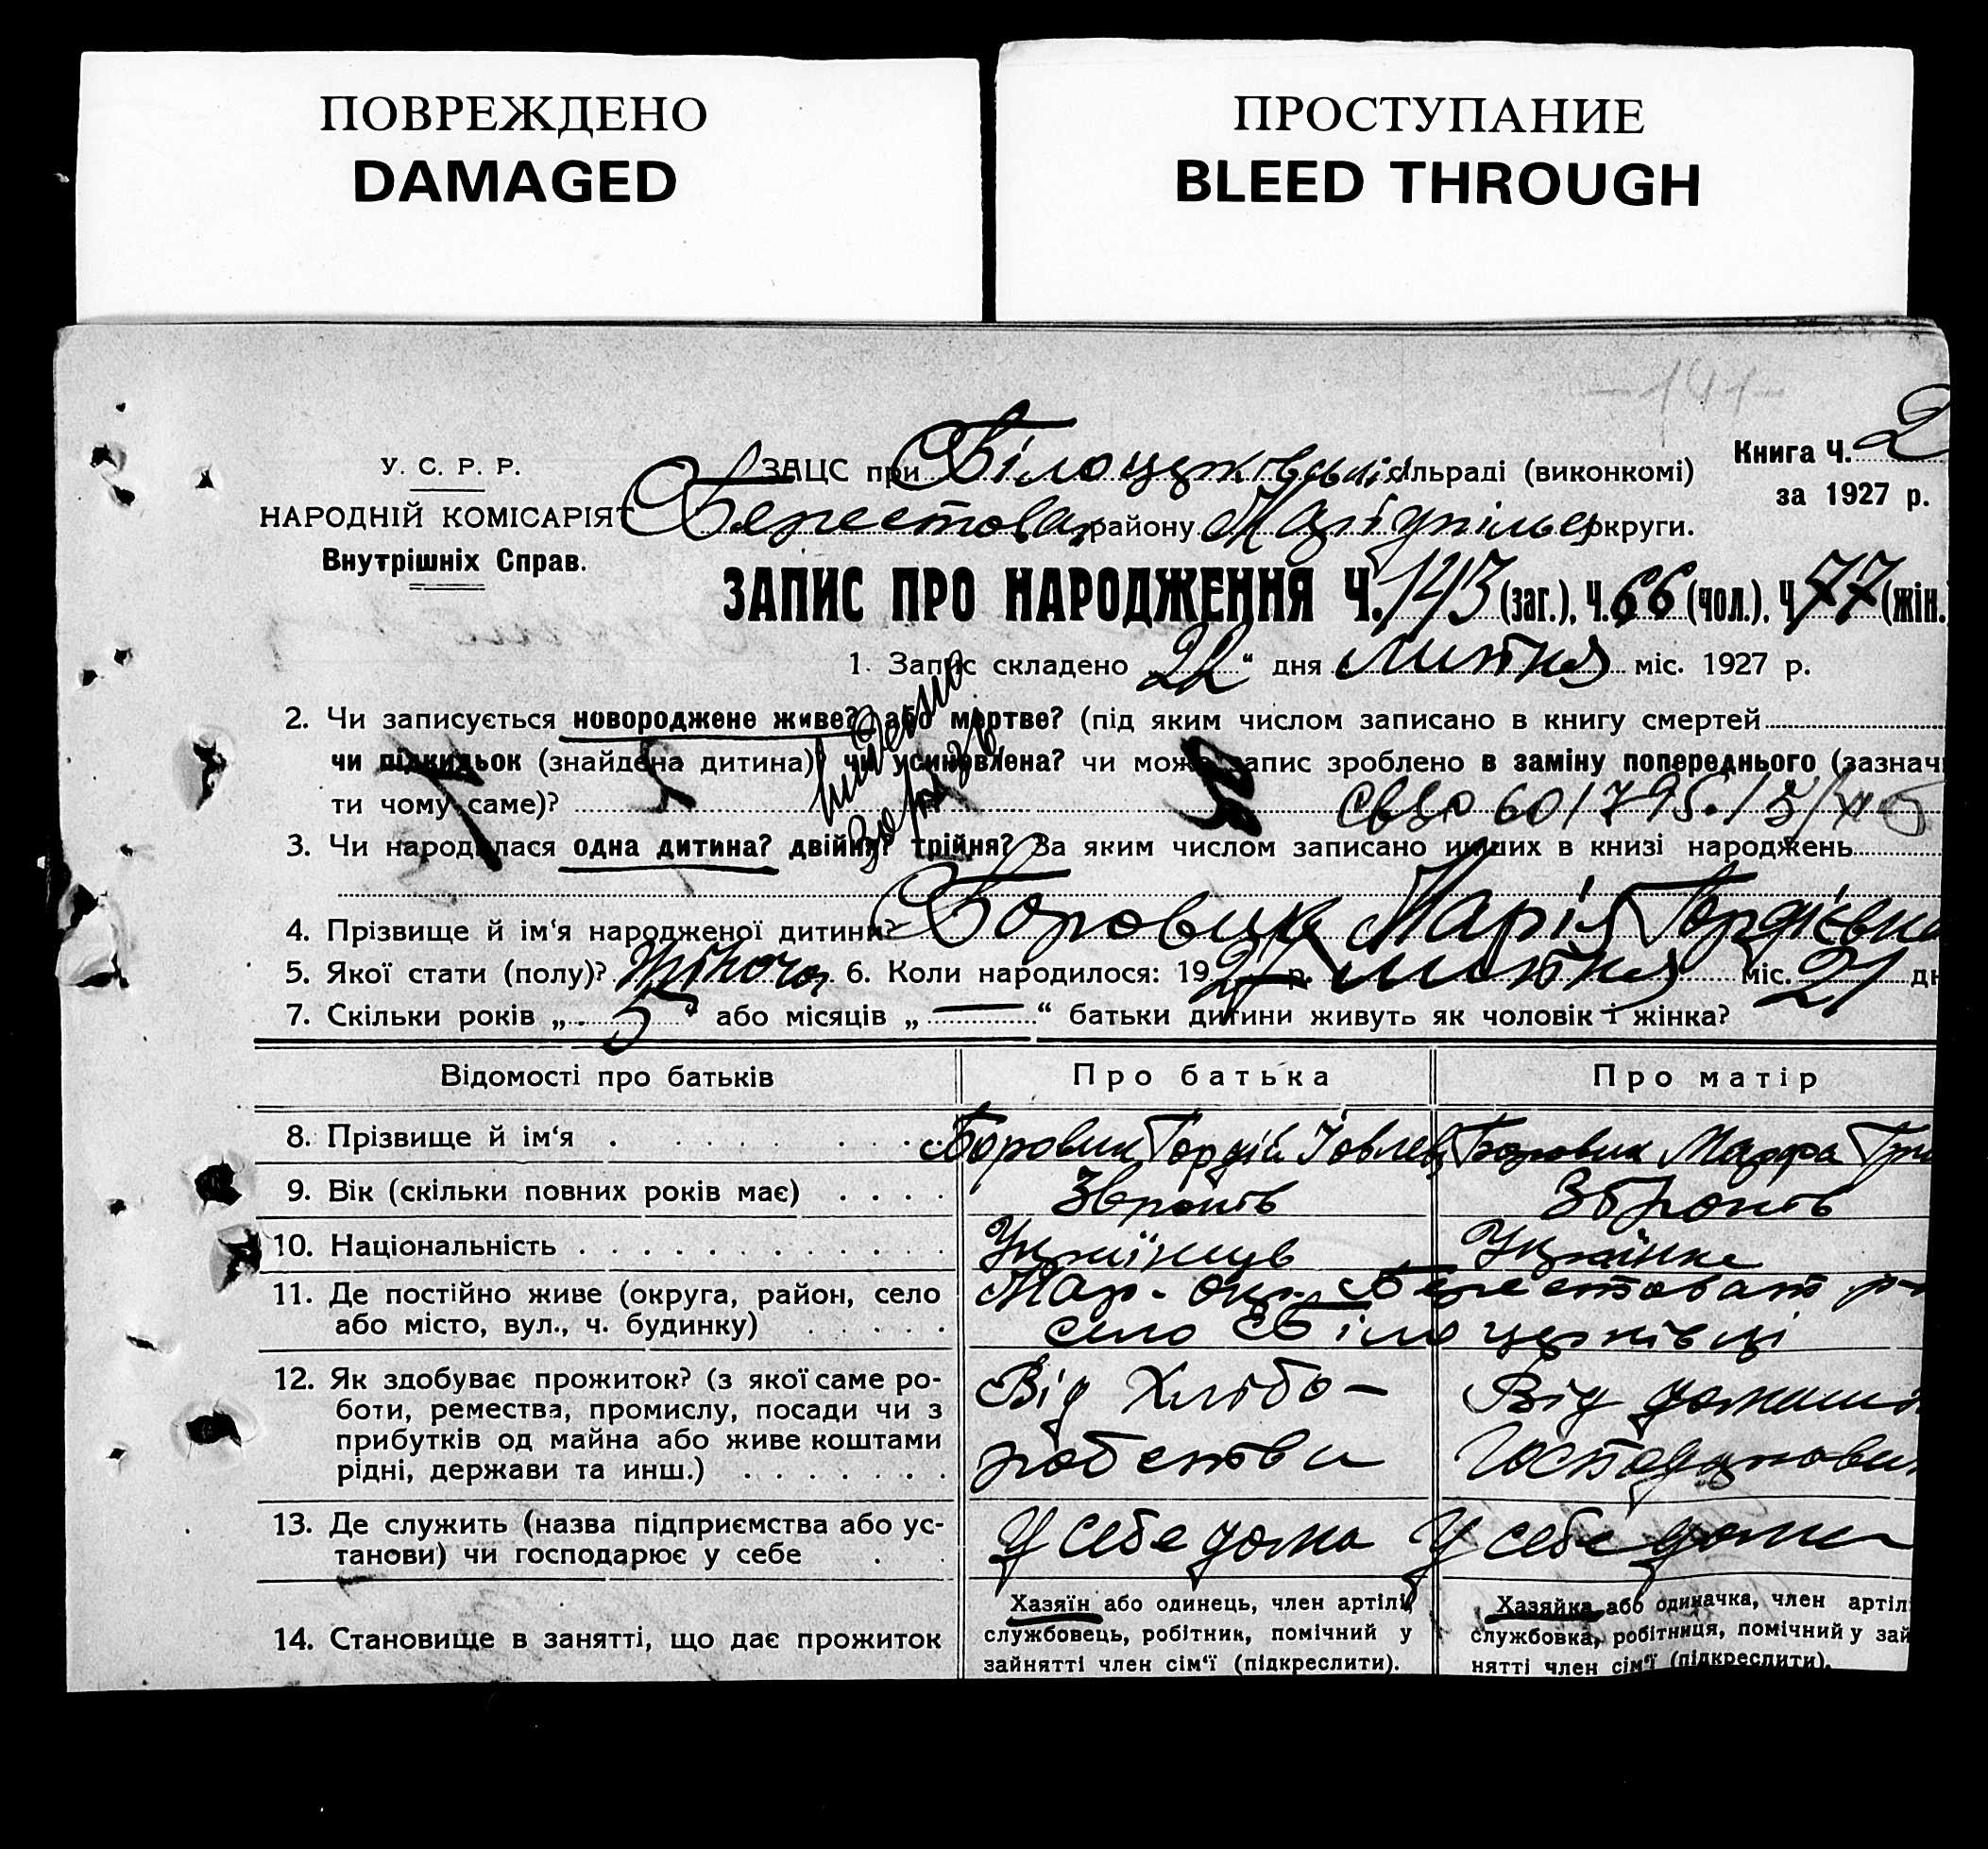 ПОВРЕЖДЕНО
DAMAGED
ПРОСТУПАНИЕ
BLEED THROUGH
- 141 -
У. С. Р. Р.
НАРОДНІЙ КОМІСАРІЯТ
Внутрішніх Справ.
ЗАЦС при Білоцерківській сільраді (виконкомі)
Берестован району Маріупільс округи.
Книга Ч. 2
за 1927 р.
ЗАПИС ПРО НАРОДЖЕННЯ Ч. 143 (заг.), Ч. 66 (чол.), Ч 77 (жін.)
1. Запис складено 22 " дня Липня міс. 1927 р.
2. Чи записується новороджене живе? або мертве? (під яким числом записано в книгу смертей
чи підкидьок (знайдена дитина)? чи усиновлена? чи може запис зроблено в заміну попереднього (зазначи
ти чому саме)?
3. Чи народилася одна дитина? двійня? трійня? За яким числом записано инших в книзі народжень
4. Прізвище й ім'я народженої дитини? Боровик Марія Гордієвна
5. Якої стати (полу)? Жіноча 6. Коли народилося: 1927 р. Липня міс. 21 дн
7. Скільки років „ 5 " або місяців „ — " батьки дитини живуть як чоловік і жінка?
Відомості про батьків Про батька Про матір
8. Прізвище й ім'я Боровик Гордій Іовлев Боровик Марфа Гри
9. Вік (скільки повних років має)
10. Національність Українців Українка
11. Де постійно живе (округа, район, село Мар. окр. Берестован р-
або місто, вул., ч. будинку) село Білоцерківці
12. Як здобуває прожиток? (з якої саме ро- Від Хлібо-
боти, ремества, промислу, посади чи з Від домашн
прибутків од майна або живе коштами робства
рідні, держави та инш.)
13. Де служить (назва підприємства або ус- У себе дома У себе дома
танови) чи господарює у себе
14. Становище в занятті, що дає прожиток
Хазяїн або одинець, член артілі,
службовець, робітник, помічний у
зайнятті член сім'ї (підкреслити).
Хазяйка або одиначка, член артіл
службовка, робітниця, помічний у зай
нятті член сім'ї (підкреслити).